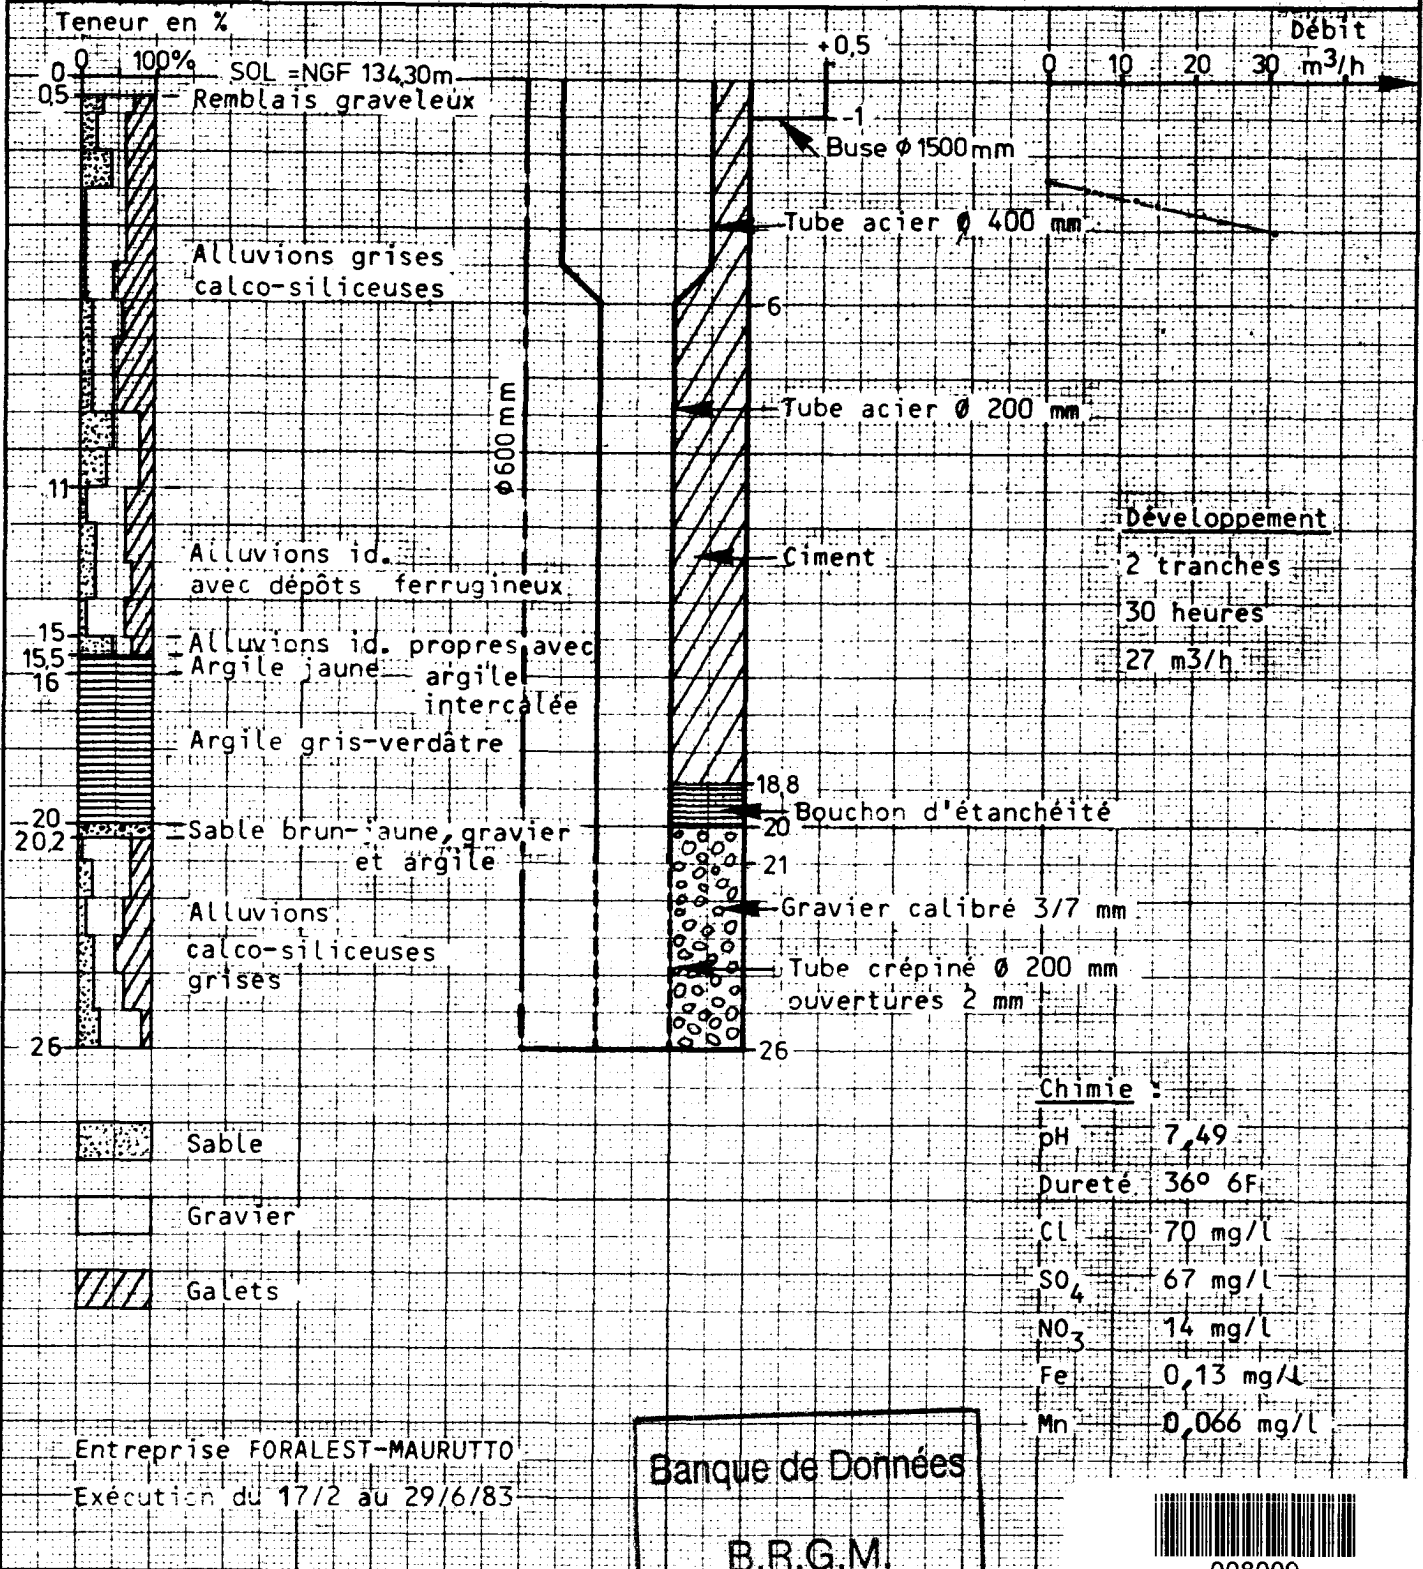 Teneur en %
0 100%
0
0,5
SOL =NGF 134,30m
Remblais graveleux
Alluvions grises
calco-siliceuses
11
Alluvions id.
avec dépôts ferrugineux
15
Alluvions id. propres avec
argile
intercalée
15,5
Argile jaune
16
Argile gris-verdâtre
20
Sable brun-jaune, gravier
et argile
20,2
Alluvions
calco-siliceuses
grises
26
Sable
Gravier
Galets
Entreprise FORALEST-MAURUTTO
Exécution du 17/2 au 29/6/83
ø 600 mm
+0,5
-1
Buse ø 1500 mm
Tube acier Ø 400 mm
6
Tube acier Ø 200 mm
Ciment
18,8
Bouchon d'étanchéité
20
21
Gravier calibré 3/7 mm
Tube crépiné Ø 200 mm
ouvertures 2 mm
26
Débit
m³/h
0 10 20 30
Développement
2 tranches
30 heures
27 m3/h
Chimie :
pH 7,49
Dureté 36° 6F
Cl 70 mg/l
SO4 67 mg/l
NO3 14 mg/l
Fe 0,13 mg/l
Mn 0,066 mg/l
Banque de Données
B.R.G.M.